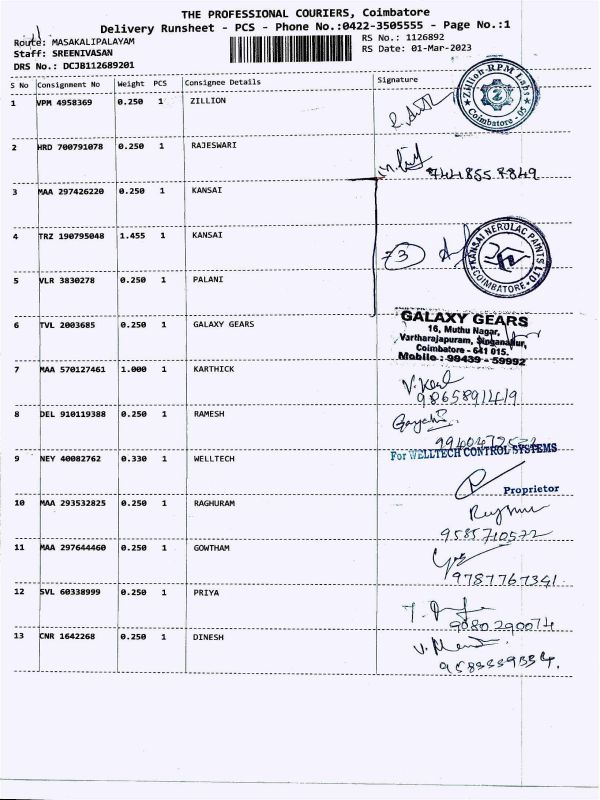 THE PROFESSIONAL COURIERS, Coimbatore
Delivery Runsheet - PCS - Phone No.:0422-3505555 - Page No.:1
Route: MASAKALIPALAYAM
RS No.: 1126892
Staff: SREENIVASAN
RS Date: 01-Mar-2023
DRS No.: DCJB112689201
S No Consignment No Weight PCS Consignee Details Signature
1 VPM 4958369 0.250 1 ZILLION
Zillion RPM Labs
Coimbatore - 05
2 HRD 700791078 0.250 1 RAJESWARI
3 MAA 297426220 0.250 1 KANSAI
4 TRZ 190795048 1.455 1 KANSAI
3
KANSAI NEROLAC PAINTS LTD
COIMBATORE
5 VLR 3830278 0.250 1 PALANI
6 TVL 2003685 0.250 1 GALAXY GEARS
GALAXY GEARS
16, Muthu Nagar,
Vartharajapuram, Singanallur,
Coimbatore - 641 015.
Mobile : 99439 - 59992
7 MAA 570127461 1.000 1 KARTHICK
9865891419
8 DEL 910119388 0.250 1 RAMESH
9 NEY 40082762 0.330 1 WELLTECH
For WELLTECH CONTROL SYSTEMS
Proprietor
10 MAA 293532825 0.250 1 RAGHURAM
9585710572
11 MAA 297644460 0.250 1 GOWTHAM
9787767341
12 SVL 60338999 0.250 1 PRIYA
9080290074
13 CNR 1642268 0.250 1 DINESH